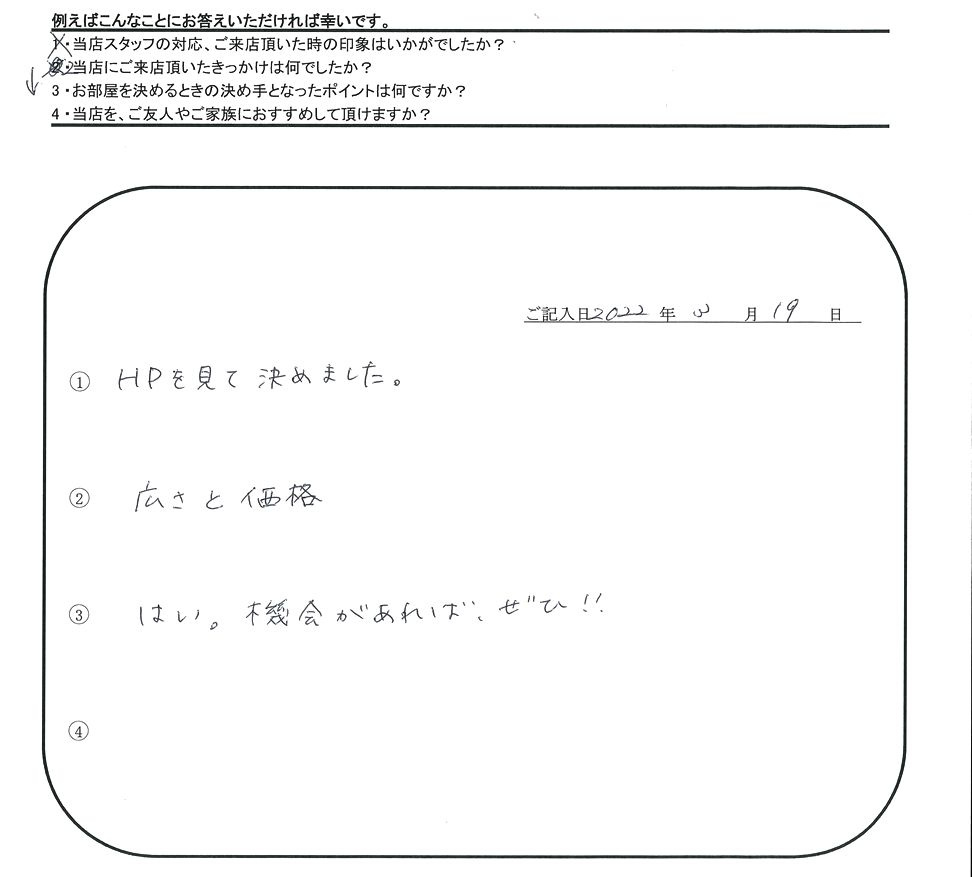 例えばこんなことにお答えいただければ幸いです。
1・当店スタッフの対応、ご来店頂いた時の印象はいかがでしたか？
2・当店にご来店頂いたきっかけは何でしたか？
3・お部屋を決めるときの決め手となったポイントは何ですか？
4・当店を、ご友人やご家族におすすめして頂けますか？
ご記入日2022年3月19日
① HPを見て決めました。
② 広さと価格
③ はい。機会があれば、ぜひ!!
④